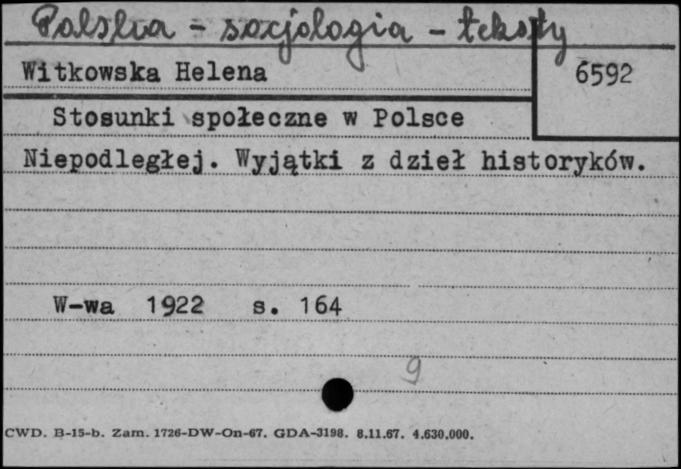 Polska - socjologia - teksty
Witkowska Helena
6592
Stosunki społeczne w Polsce
Niepodległej. Wyjątki z dzieł historyków.
W-wa 1922 s. 164
9
CWD. B-15-b. Zam. 1726-DW-On-67. GDA-3198. 8.11.67. 4.630.000.